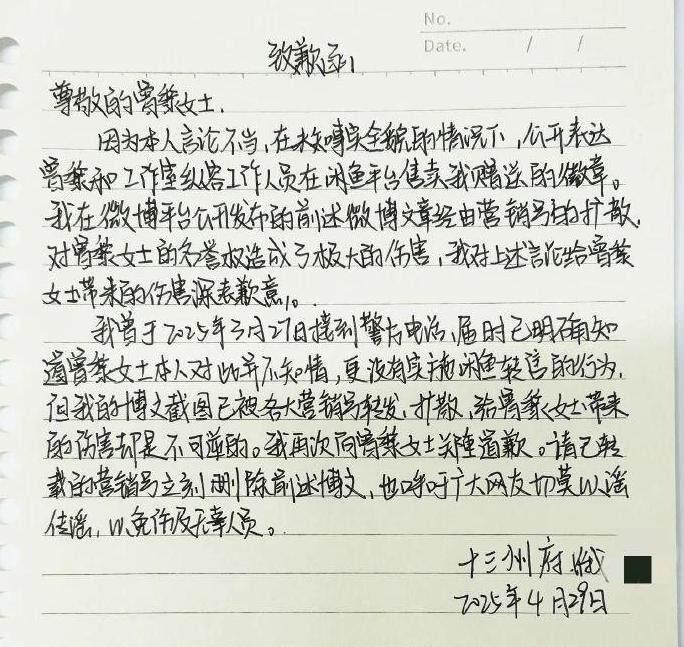 No.
Date. / /
致歉函
尊敬的曾黎女士，
因为本人言论不当，在未知事实全貌的情况下，公开表达
曾黎和工作室纵容工作人员在闲鱼平台售卖我赠送的徽章。
我在微博平台公开发布的前述微博文章经由营销号的扩散，
对曾黎女士的名誉权造成了极大的伤害，我对上述言论给曾黎
女士带来的伤害深表歉意。
我曾于2025年3月27日接到警方电话，届时已明确知
道曾黎女士本人对此并不知情，更没有实施闲鱼转售的行为，
但我的博文截图已被各大营销号转发、扩散，给曾黎女士带来
的伤害却是不可逆的。我再次向曾黎女士关障道歉。请已转
载的营销号立刻删除前述博文，也呼吁广大网友切莫以谣
传谣，以免伤及无辜人员。
十三州府
2025年4月29日